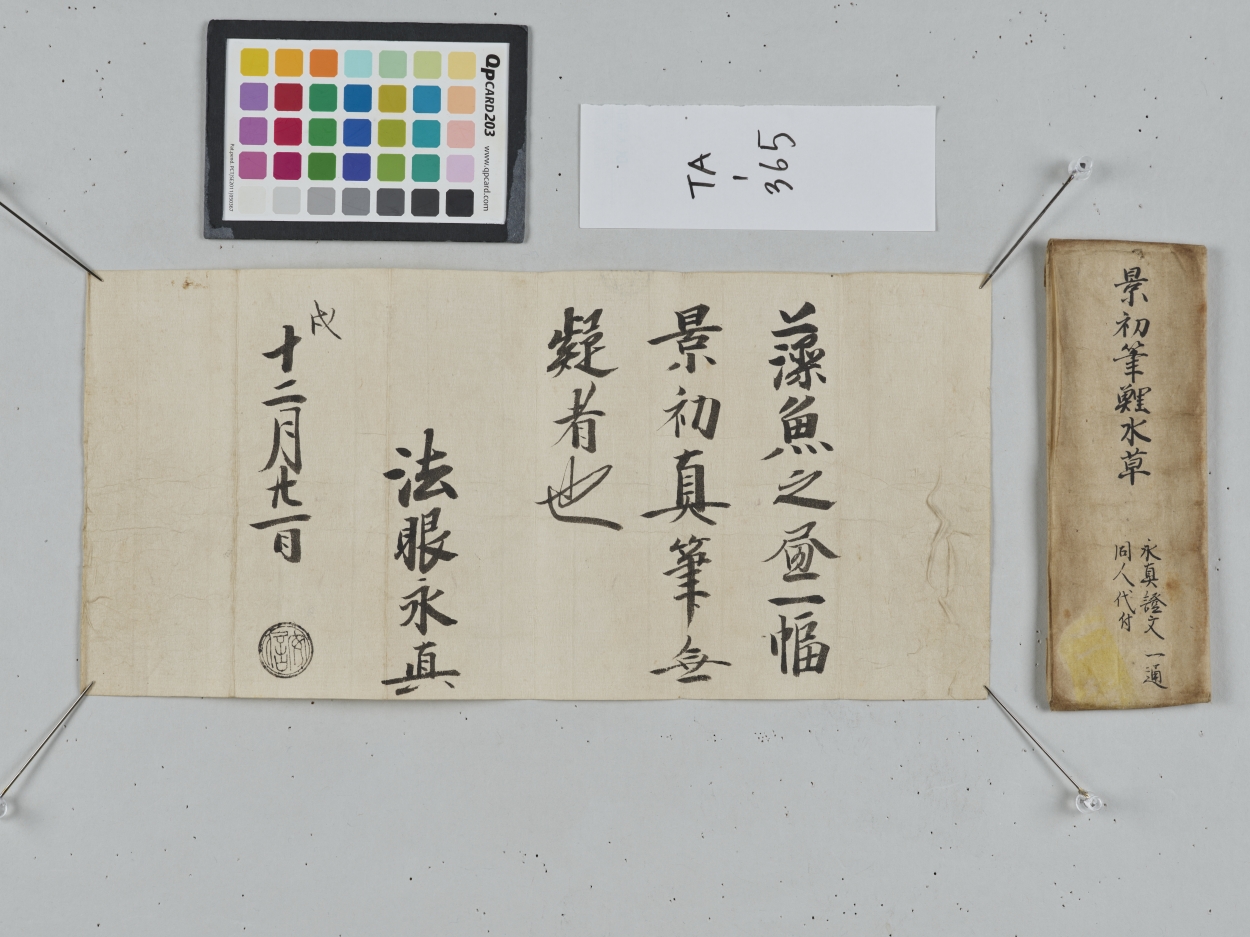 QPCARD203
www.qpcard.com
TA
-
365
藻魚之畫一幅
景初真筆無
疑者也
法眼永真
戌
十二月廿一日
安信
景初筆鯉水草
永真證文一通
同人代付